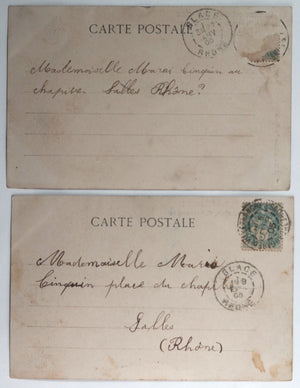 CARTE POSTALE
BLACE
RHONE
Mademoiselle Marai Cinquin au
chapitre Salles Rhône?
CARTE POSTALE
BLACE
RHONE
Mademoiselle Marie
Cinquin place du chapitre
Salles
(Rhône)